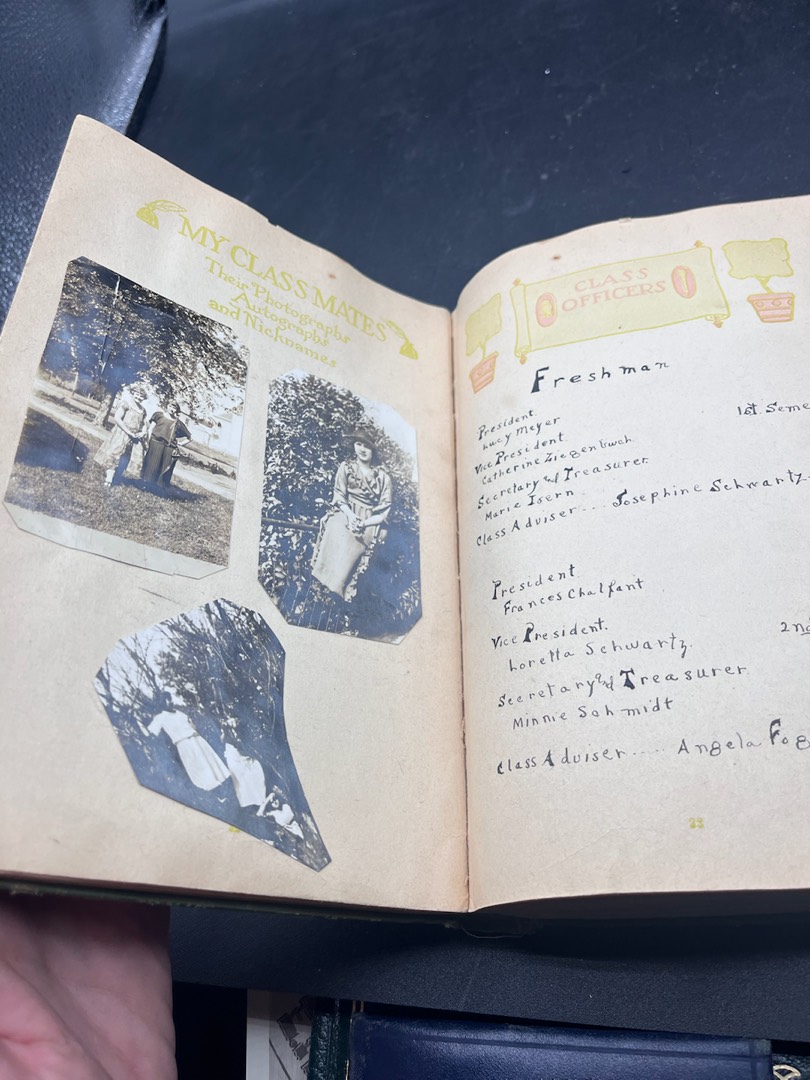 MY CLASS MATES
Their Photographs
Autographs
and Nicknames
CLASS
OFFICERS
Freshman
President.
Lucy Meyer
1st. Seme
Vice President
Catherine Ziegenbuch
Secretary and Treasurer.
Marie Isern
Class Adviser.... Josephine Schwartz.
President
Frances Chalfant
Vice President.
2nd
Loretta Schwartz.
Secretary and Treasurer
Minnie Schmidt
Class Adviser..... Angela Fog
23